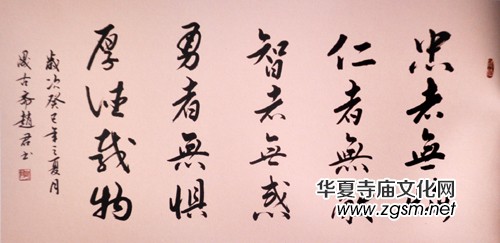 忠者無
仁者無敵
智者无惑
勇者無惧
厚德载物
歲次癸巳年之夏月
晟古斋趙君书
华夏寺庙文化网
www.zgsm.net